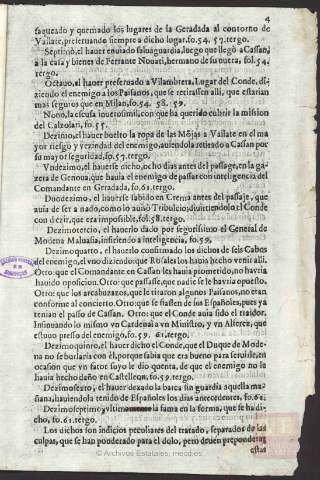 4
saqueado y quemado los lugares de la Geradada al contorno de
Vailate, preseruando siempre a dicho lugar. fo. 54. 57. tergo.
Septimo, el hauer embiado saluaguardia, luego que llegò a Cassan,
a la casa y bienes de Ferrante Nouati, hermano de su nuera, fol. 54.
tergo.
Octauo, al hauer preseruado a Vilambrera, Lugar del Conde, di-
ziendo el enemigo a los Paisanos, que se retirassen alli, que estarian
mas seguros que en Milan, fo. 54. 58. 59.
Nono, la escusa inuerisimil, con que ha querido cubrir la mission
del Calzolari, fo. 55.
Dezimo, el hauer buelto la ropa de las Mòjas a Vailate en el ma
yor riesgo y vezindad del enemigo, auiendola retirado a Cassan por
su mayor seguridad, fo. 57. tergo.
Vndezimo, el hauerse dicho, ocho dias antes del passage, en la ga-
zeta de Genoua, que hauia el enemigo de passar con inteligencia del
Comandante en Geradada, fo. 61. tergo.
Duodezimo, el hauerse sabido en Crema antes del passaje, que
auia de ser a nado, como lo auisò Tribulcio, diuirtiendolo el Conde
con dezir, que era imposible, fol. 58. tergo.
Dezimotercio, el hauerlo dado por segorissimo el General de
Modena Maluasia, insistiendo a inteligencia, fo. 59.
Dezimoquarto, el hauerlo confirmado los dichos de seis Cabos
del enemigo, el vno diziendo: que Rosales los hauia hecho venir alli.
Otro: que el Comandante en Cassan les hauia prometido, no havria
hauido oposicion. Otro: que passasse, que nadie se le havria opuesto.
Otro: que los arcabuzazos, que le tiraron algunos Paisanos, no etan
conforme al concierto. Otro: que se fiassen de sus Españoles, pues ya
tenian el passo de Cassan. Otro: que el Conde auia sido el traidor.
Insinuando lo mismo vn Cardenal a vn Ministro, y vn Alferez, que
estuuo presso del enemigo, fo. 59. 61. tergo.
Dezimoquinto, el hauer dicho el Conde, que el Duque de Mode-
na no se burlaria con èl, porque sabia que era bueno para seruirle, en
ocasion que vn sastre suyo le dio quenta, de que el enemigo no le
hauia hecho daño en Castelleon, fo. 59. tergo.
Dezimosexto, el hauer dexado la barca sin guardia aquella ma-
ñana, hauiendola tenido de Españoles los dias antecedentes, fo. 61.
Dezimoseptimo, y vltimo la fama en la forma, que se ha di-
cho, fo. 61. tergo.
Los dichos son indicios peculiares del tratado, separados de las
culpas, que se han ponderado para el dolo, pero deuen preponderar
estas
© Archivos Estatales, mecd.es